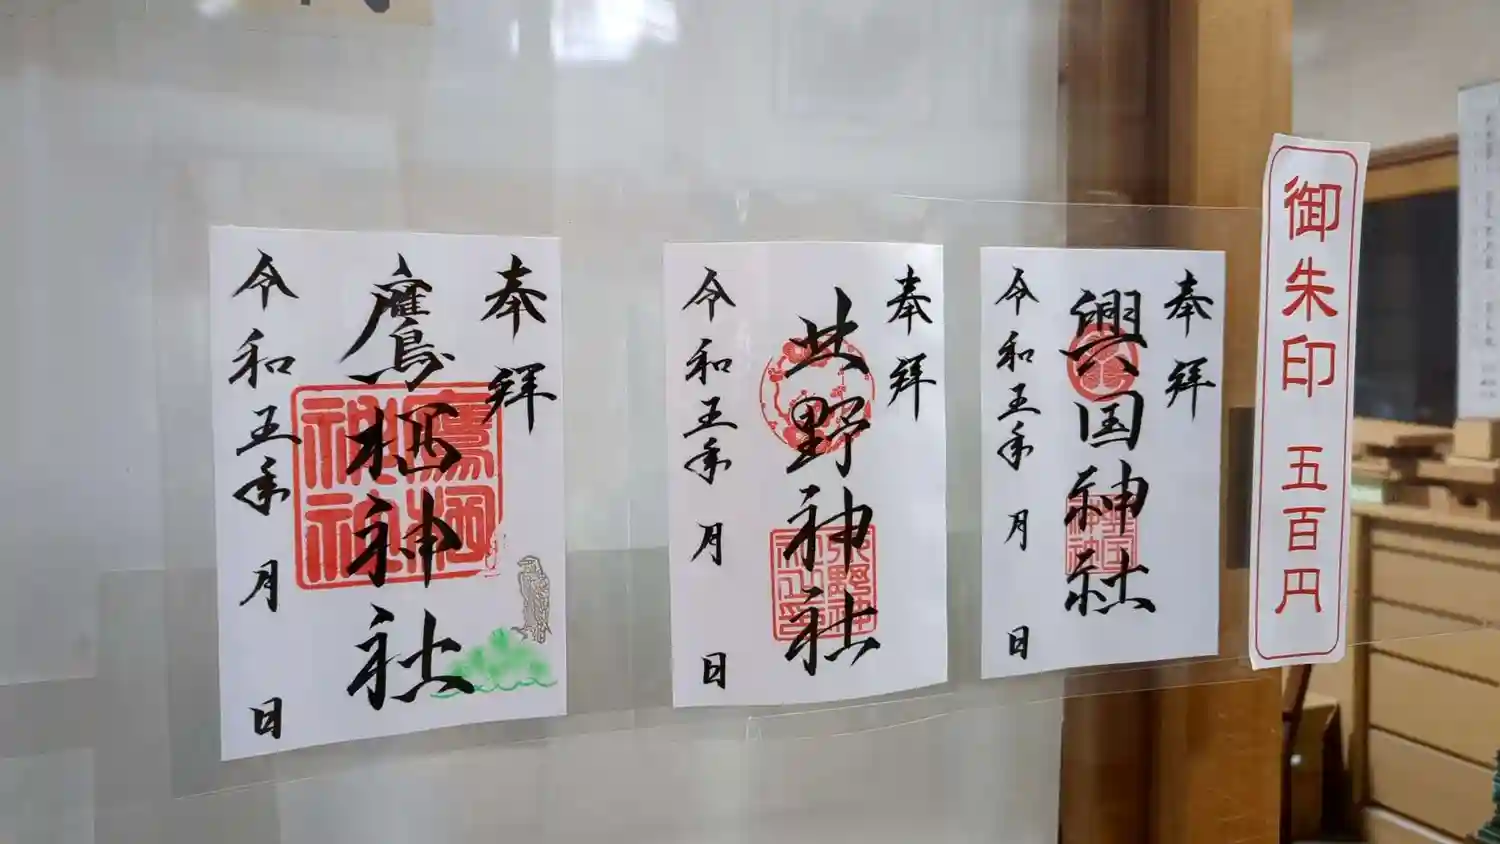 御朱印 五百円
奉拝
興国神社
令和五年 月 日
奉拝
北野神社
北野神社之印
令和五年 月 日
奉拝
鷹栖神社
鷹栖神社
令和五年 月 日